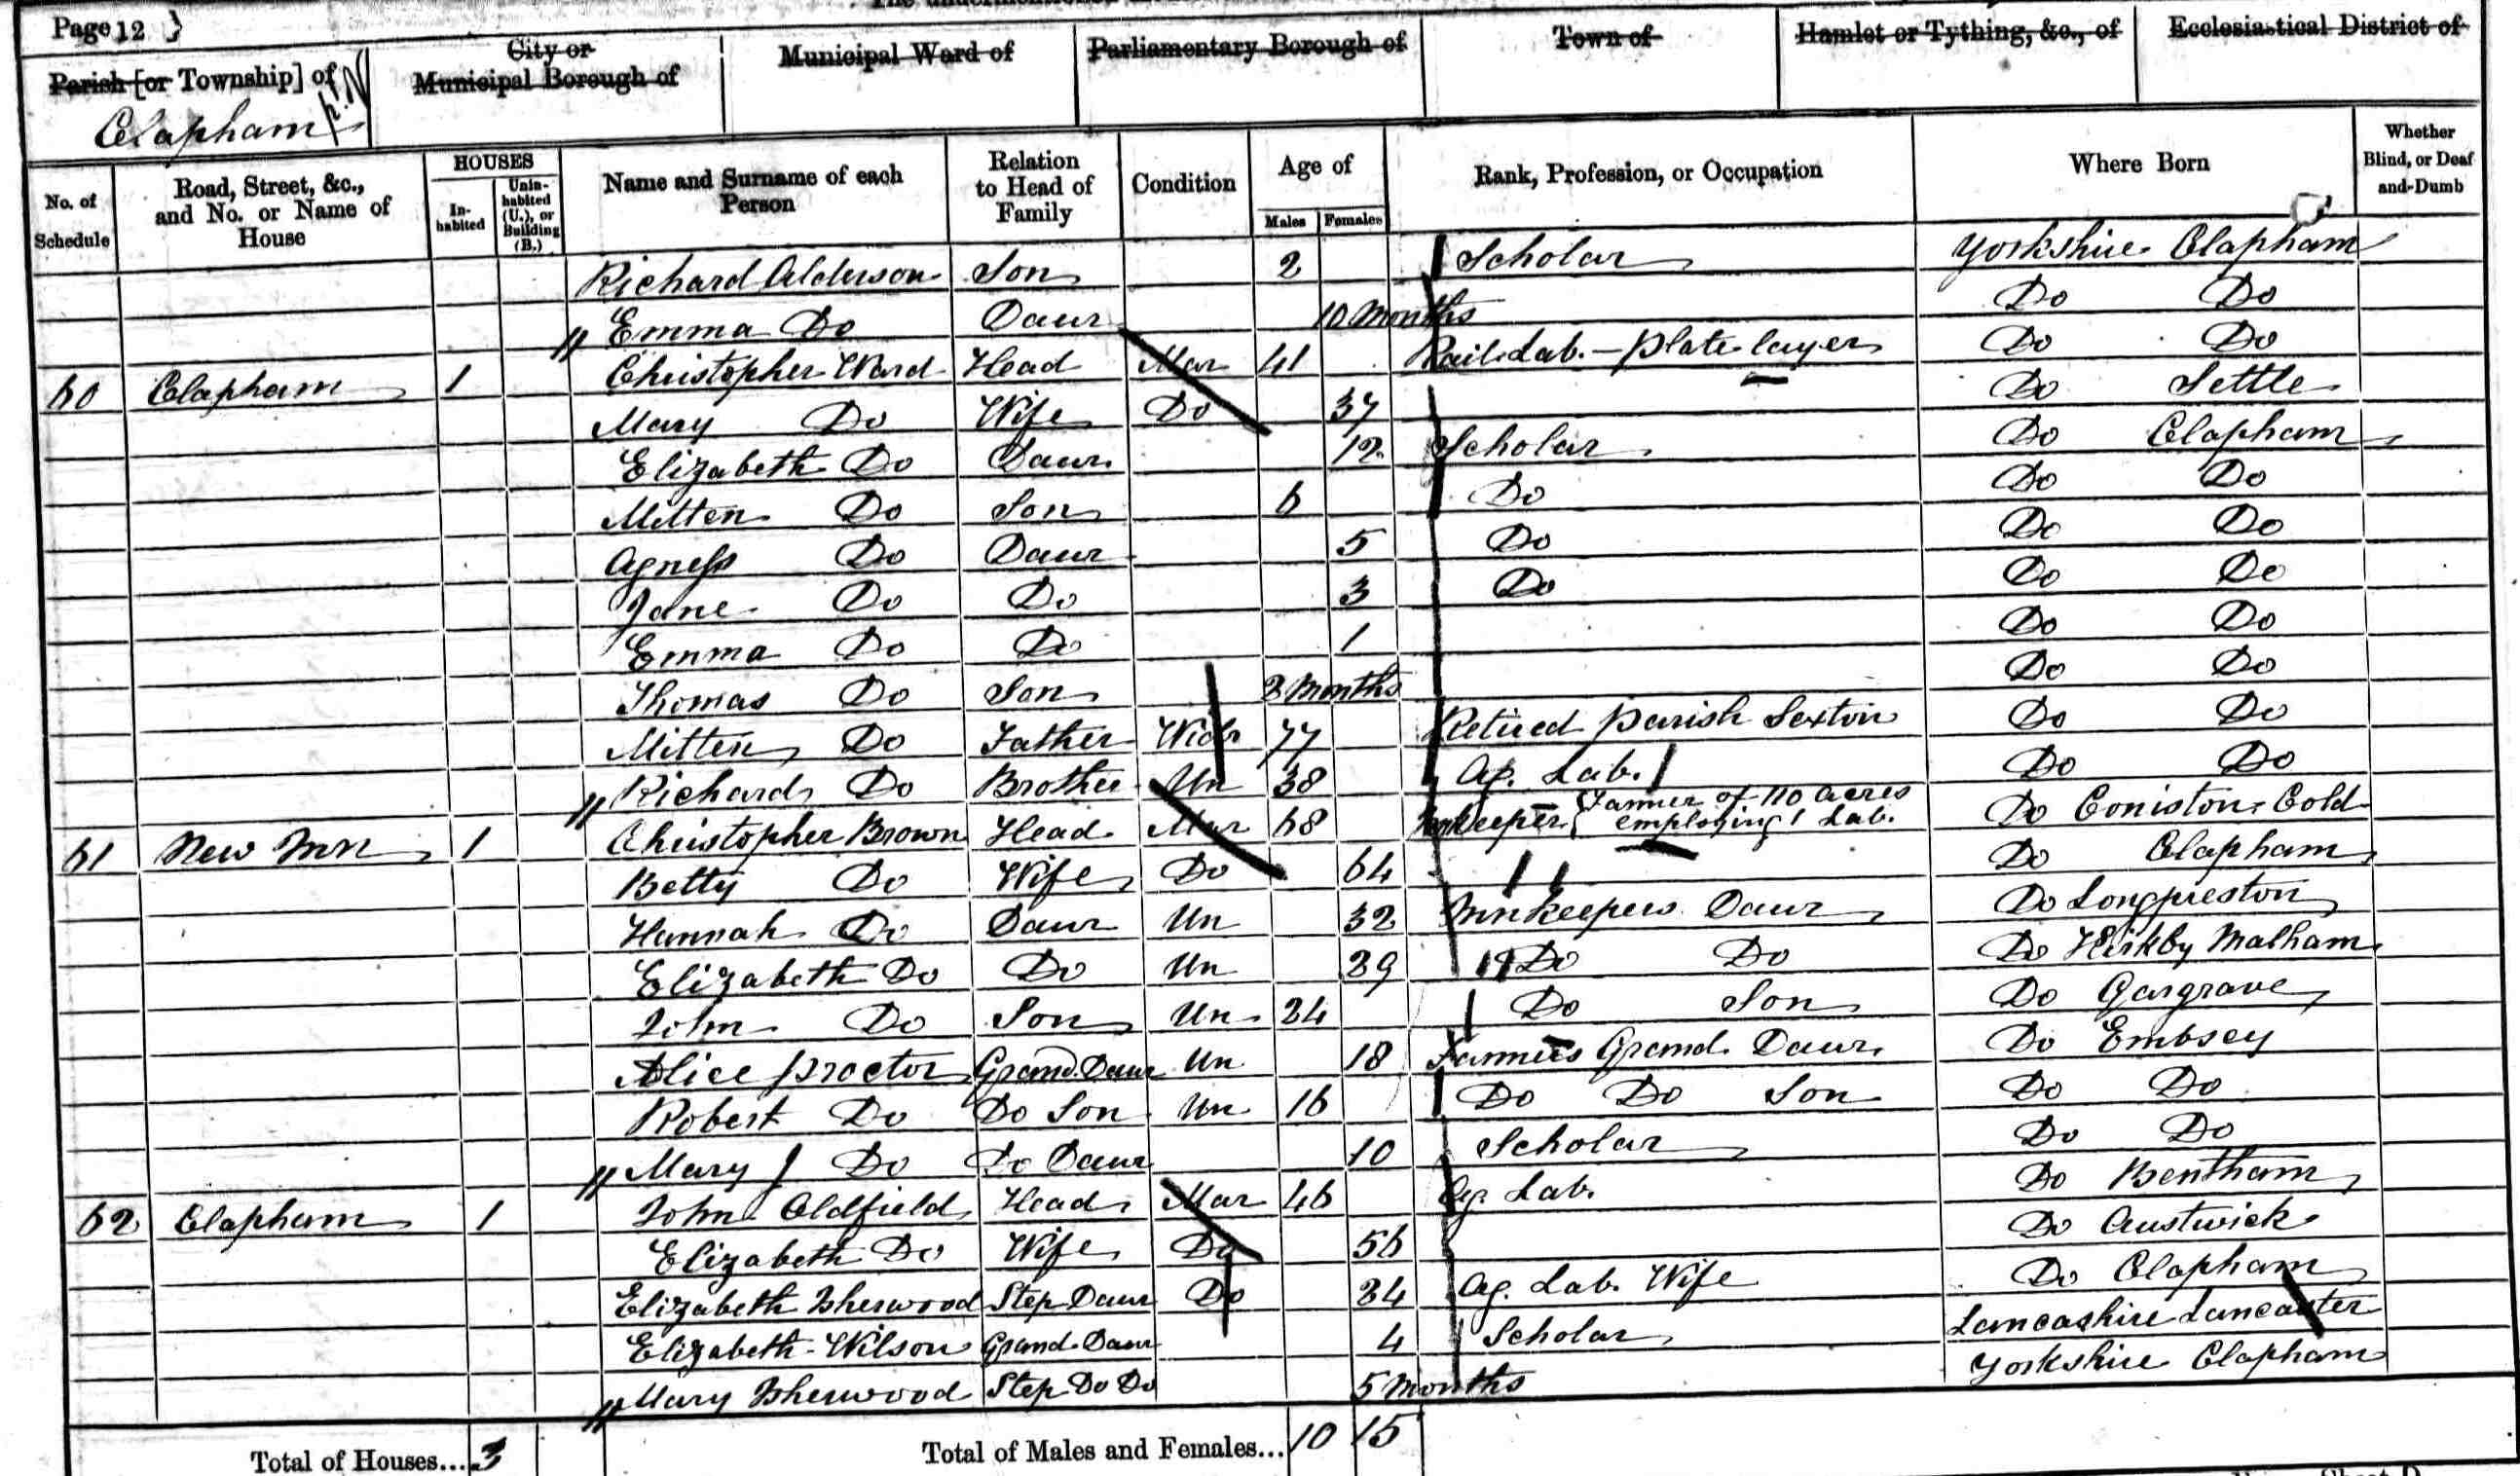 Page 12 }
Parish [or Township] of
City or
Municipal Borough of
Municipal Ward of
Parliamentary Borough of
Town of
Hamlet or Tything, &c., of
Ecclesiastical District of
Clapham
No. of Schedule
Road, Street, &c., and No. or Name of House
HOUSES
Inhabited
Uninhabited (U.), or Building (B.)
Name and Surname of each Person
Relation to Head of Family
Condition
Age of
Males
Females
Rank, Profession, or Occupation
Where Born
Whether Blind, or Deaf-and-Dumb
Richard Alderson Son 2 Scholar Yorkshire Clapham
Emma Do Daur 10 Months Do Do
60 Clapham 1 Christopher Ward Head Mar 41 Rail. Lab. – Plate layer Do Do
Mary Do Wife Do 37 Do Settle
Elizabeth Do Daur 12 Scholar Do Clapham
Mitten Do Son 6 Do Do Do
Agness Do Daur 5 Do Do Do
Jane Do Do 3 Do Do Do
Emma Do Do 1 Do Do
Thomas Do Son 2 Months Do Do
Mitten Do Father Widr 77 Retired Parish Sexton Do Do
Richard Do Brother Un 38 Ag. Lab. Do Do
61 New Inn 1 Christopher Brown Head Mar 68 Innkeeper { Farmer of 110 acres employing 1 Lab. Do Coniston Cold
Betty Do Wife Do 64 Do Clapham
Hannah Do Daur Un 32 Innkeepers Daur Do Longpreston
Elizabeth Do Do Un 29 Do Do Do Kirkby Malham
John Do Son Un 24 Do Son Do Gargrave
Alice Proctor Grand Daur Un 18 Farmers Grand Daur Do Embsey
Robert Do Do Son Un 16 Do Do Son Do Do
Mary J Do Do Daur 10 Scholar Do Do
62 Clapham 1 John Oldfield Head Mar 46 Ag. Lab. Do Bentham
Elizabeth Do Wife Do 56 Do Austwick
Elizabeth Isherwood Step Daur Do 24 Ag. Lab. Wife Do Clapham
Elizabeth Wilson Grand Daur 4 Scholar Lancashire Lancaster
Mary Isherwood Step Do Do 5 Months Yorkshire Clapham
Total of Houses... 3
Total of Males and Females... 10 15